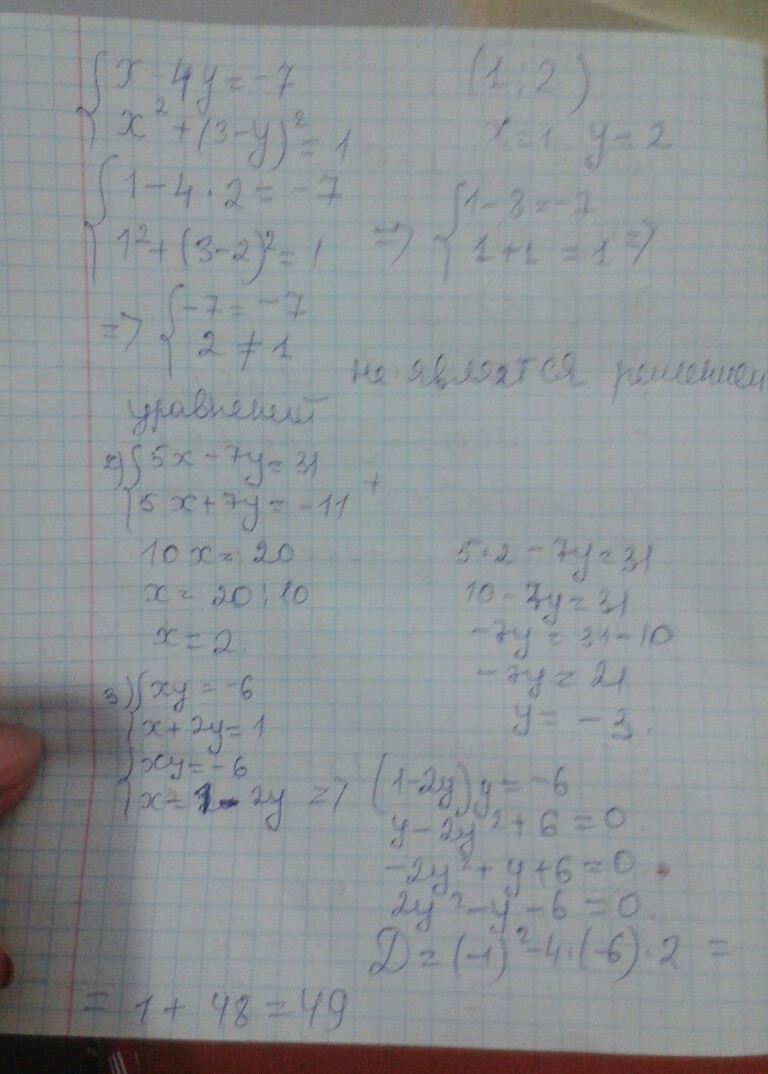 { x - 4y = -7     (1; 2)
{ x² + (3-y)² = 1     x=1  y=2
{ 1 - 4 · 2 = -7
{ 1² + (3-2)² = 1  =>  { 1 - 8 = -7
{ 1 + 1 = 1 =>
=> { -7 = -7
{ 2 ≠ 1
не является решением
уравнений
2) { 5x - 7y = 31
{ 5x + 7y = -11  +
10x = 20     5·2 - 7y = 31
x = 20:10     10 - 7y = 31
x = 2.     -7y = 31 - 10
3) { xy = -6     -7y = 21
{ x + 2y = 1     y = -3.
{ xy = -6
{ x = 1 - 2y  =>  (1-2y)y = -6
y - 2y² + 6 = 0.
-2y² + y + 6 = 0.
2y² - y - 6 = 0.
D = (-1)² - 4·(-6)·2 =
= 1 + 48 = 49